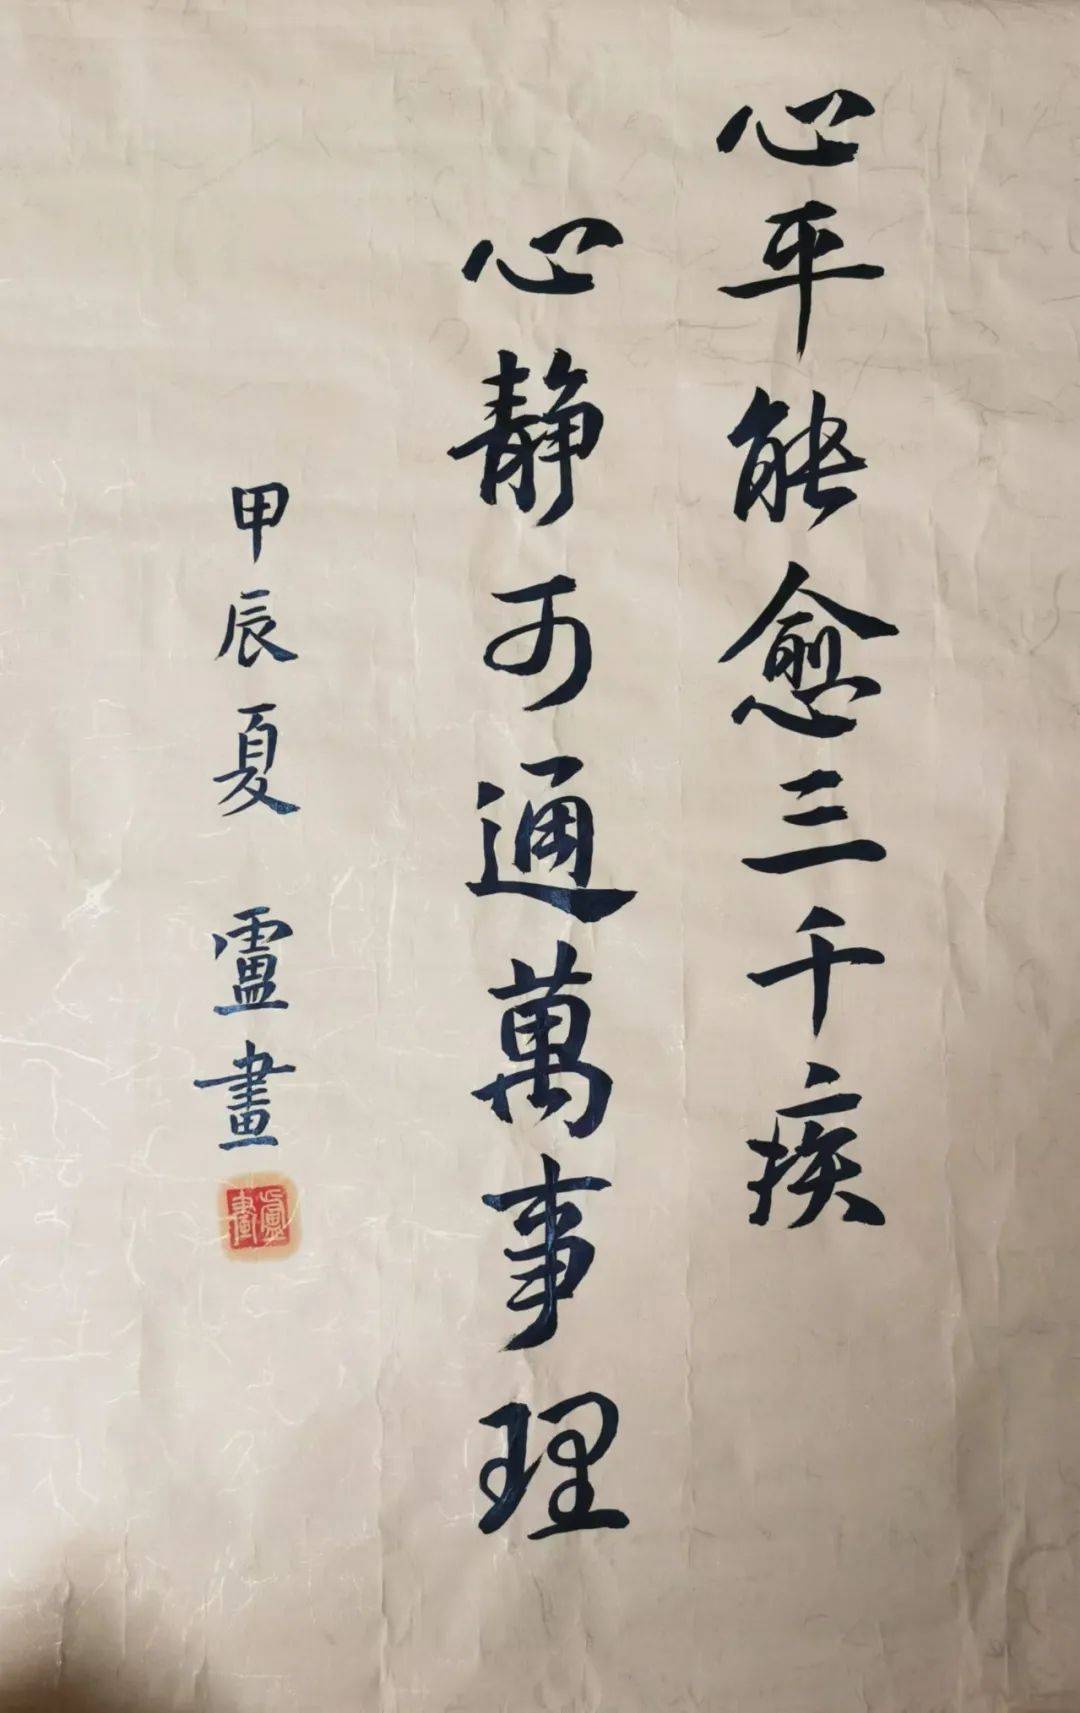 心平能愈三千疾
心静可通萬事理
甲辰夏 盧畫
盧畫